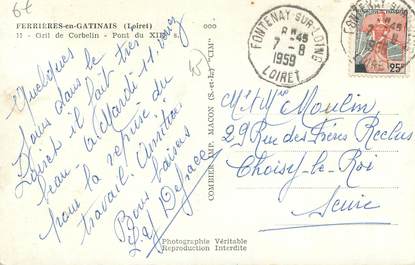 6€
FERRIÈRES-en-GATINAIS (Loiret)
11 - Gril de Corbelin - Pont du XIIIe s.
Quelques
jours dans le
Loiret il fait très
beau. A Mardi 11. Avez
pour la reprise du
travail. Amitiés
Bons baisers
COMBIER IMP. MACON (S.-et-L.) "CIM"
FONTENAY SUR LOING
7-8
1959
LOIRET
FONTENAY SUR LOING
25F
Mr et Mme Moulin
29 Rue des Frères Reclus
Choisy-le-Roi
Seine
Photographie Véritable
Reproduction Interdite